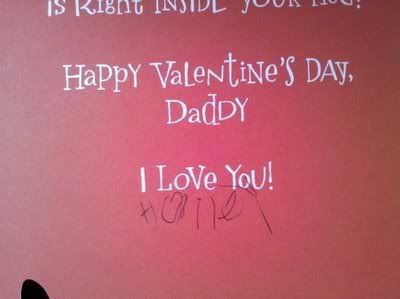 is Right INSIDE YOUR HUG!
HAPPY VALENTINE'S DAY,
DADDY
I LOVE YOU!